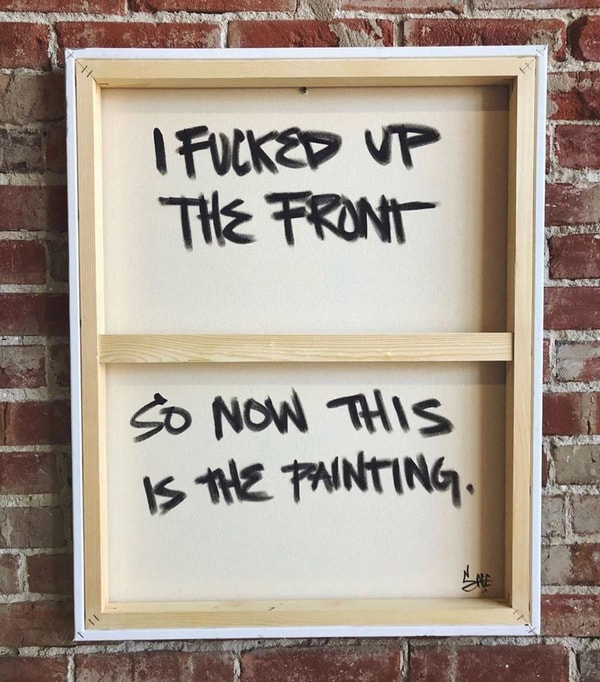 I FUCKED UP
THE FRONT
SO NOW THIS
IS THE PAINTING.